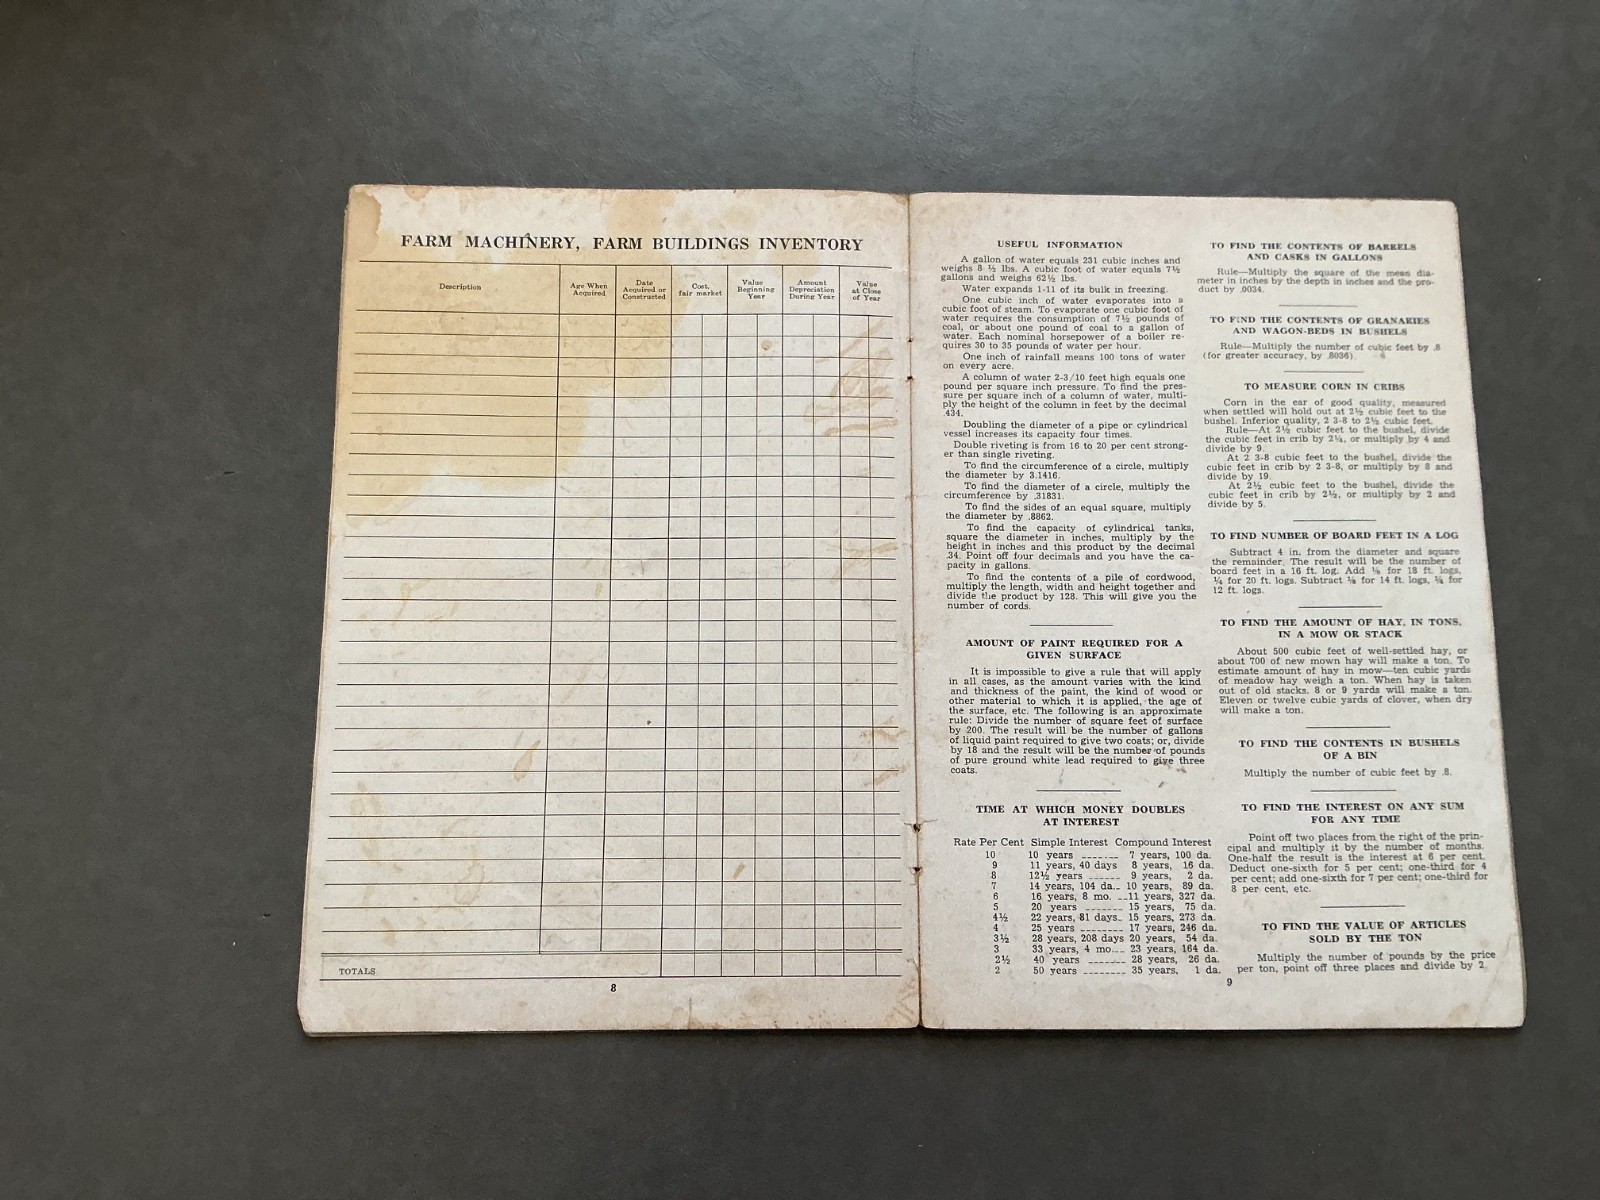 FARM MACHINERY, FARM BUILDINGS INVENTORY
Description
Age When
Acquired
Date
Acquired or
Constructed
Cost,
fair market
Value
Beginning
Year
Amount
Depreciation
During Year
Value
at Close
of Year
TOTALS
8
USEFUL INFORMATION
A gallon of water equals 231 cubic inches and
weighs 8 ½ lbs. A cubic foot of water equals 7½
gallons and weighs 62½ lbs.
Water expands 1-11 of its bulk in freezing.
One cubic inch of water evaporates into a
cubic foot of steam. To evaporate one cubic foot of
water requires the consumption of 7½ pounds of
coal, or about one pound of coal to a gallon of
water. Each nominal horsepower of a boiler re-
quires 30 to 35 pounds of water per hour.
One inch of rainfall means 100 tons of water
on every acre.
A column of water 2-3/10 feet high equals one
pound per square inch pressure. To find the pres-
sure per square inch of a column of water, multi-
ply the height of the column in feet by the decimal
.434.
Doubling the diameter of a pipe or cylindrical
vessel increases its capacity four times.
Double riveting is from 16 to 20 per cent strong-
er than single riveting.
To find the circumference of a circle, multiply
the diameter by 3.1416.
To find the diameter of a circle, multiply the
circumference by .31831.
To find the sides of an equal square, multiply
the diameter by .8862.
To find the capacity of cylindrical tanks,
square the diameter in inches, multiply by the
height in inches and this product by the decimal
.34. Point off four decimals and you have the ca-
pacity in gallons.
To find the contents of a pile of cordwood,
multiply the length, width and height together and
divide the product by 128. This will give you the
number of cords.
AMOUNT OF PAINT REQUIRED FOR A
GIVEN SURFACE
It is impossible to give a rule that will apply
in all cases, as the amount varies with the kind
and thickness of the paint, the kind of wood or
other material to which it is applied, the age of
the surface, etc. The following is an approximate
rule: Divide the number of square feet of surface
by 200. The result will be the number of gallons
of liquid paint required to give two coats; or, divide
by 18 and the result will be the number of pounds
of pure ground white lead required to give three
coats.
TIME AT WHICH MONEY DOUBLES
AT INTEREST
Rate Per Cent Simple Interest Compound Interest
10 10 years ------- 7 years, 100 da.
9 11 years, 40 days 8 years, 16 da.
8 12½ years ------ 9 years, 2 da.
7 14 years, 104 da.-- 10 years, 89 da.
6 16 years, 8 mo. --11 years, 327 da.
5 20 years ------- 15 years, 75 da.
4½ 22 years, 81 days- 15 years, 273 da.
4 25 years -------- 17 years, 246 da.
3½ 28 years, 208 days 20 years, 54 da.
3 33 years, 4 mo.--- 23 years, 164 da.
2½ 40 years ------- 28 years, 26 da.
2 50 years -------- 35 years, 1 da.
TO FIND THE CONTENTS OF BARRELS
AND CASKS IN GALLONS
Rule—Multiply the square of the mean dia-
meter in inches by the depth in inches and the pro-
duct by .0034.
TO FIND THE CONTENTS OF GRANARIES
AND WAGON-BEDS IN BUSHELS
Rule—Multiply the number of cubic feet by .8
(for greater accuracy, by .8036).
TO MEASURE CORN IN CRIBS
Corn in the ear of good quality, measured
when settled will hold out at 2½ cubic feet to the
bushel. Inferior quality, 2 3-8 to 2½ cubic feet.
Rule—At 2½ cubic feet to the bushel, divide
the cubic feet in crib by 2¼, or multiply by 4 and
divide by 9.
At 2 3-8 cubic feet to the bushel, divide the
cubic feet in crib by 2 3-8, or multiply by 8 and
divide by 19.
At 2½ cubic feet to the bushel, divide the
cubic feet in crib by 2½, or multiply by 2 and
divide by 5.
TO FIND NUMBER OF BOARD FEET IN A LOG
Subtract 4 in. from the diameter and square
the remainder. The result will be the number of
board feet in a 16 ft. log. Add ⅛ for 18 ft. logs,
¼ for 20 ft. logs. Subtract ⅛ for 14 ft. logs, ¼ for
12 ft. logs.
TO FIND THE AMOUNT OF HAY, IN TONS,
IN A MOW OR STACK
About 500 cubic feet of well-settled hay, or
about 700 of new mown hay will make a ton. To
estimate amount of hay in mow—ten cubic yards
of meadow hay weigh a ton. When hay is taken
out of old stacks, 8 or 9 yards will make a ton.
Eleven or twelve cubic yards of clover, when dry
will make a ton.
TO FIND THE CONTENTS IN BUSHELS
OF A BIN
Multiply the number of cubic feet by .8.
TO FIND THE INTEREST ON ANY SUM
FOR ANY TIME
Point off two places from the right of the prin-
cipal and multiply it by the number of months.
One-half the result is the interest at 6 per cent.
Deduct one-sixth for 5 per cent; one-third for 4
per cent; add one-sixth for 7 per cent; one-third for
8 per cent, etc.
TO FIND THE VALUE OF ARTICLES
SOLD BY THE TON
Multiply the number of pounds by the price
per ton, point off three places and divide by 2.
9